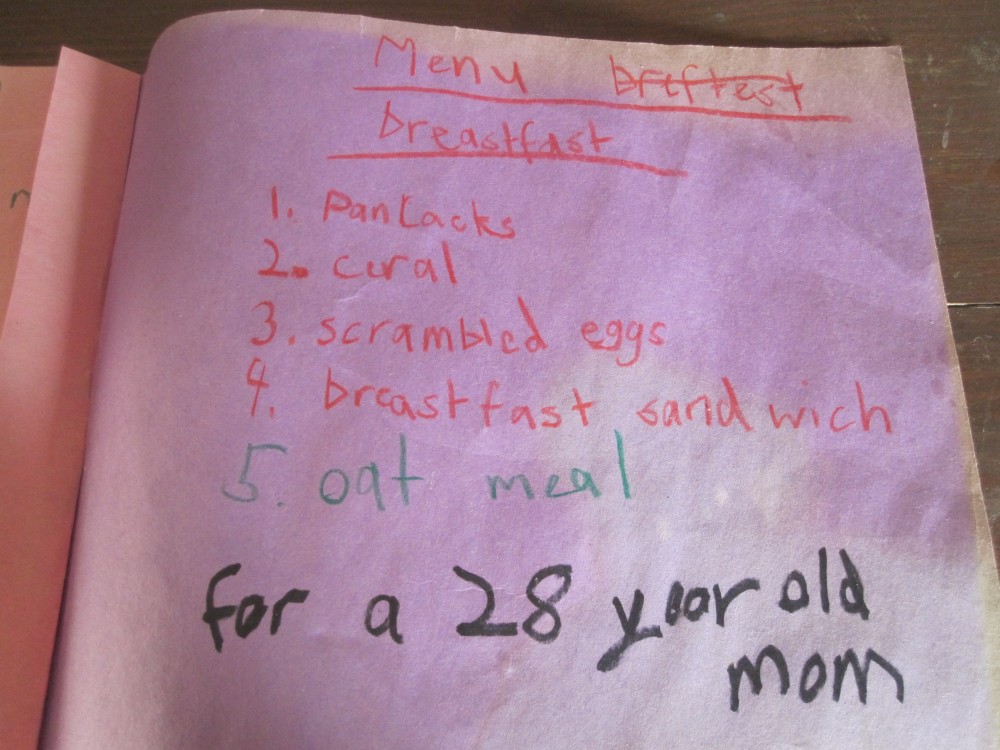 Menu breftest
breastfast
1. panCacks
2. ceral
3. scrambled eggs
4. breastfast sandwich
5. oat meal
for a 28 year old
mom